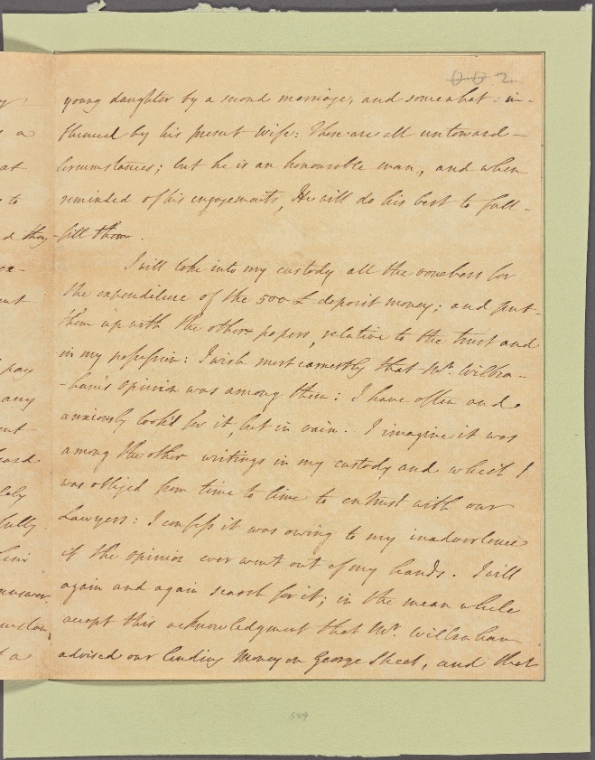 2
young daughter by a second marriage, and somewhat in-
fluenced by his present wife: These are all untoward
Circumstances; but he is an honourable man, and when
reminded of his engagements, He will do his best to full-
fill them.
I will take into my custody all the vouchers for
the expenditure of the 500 £ deposit money; and put
them up with the other papers, relative to the trust and
in my possession: I wish most earnestly that Mr. Wilbra-
-ham's Opinion was among them: I have often and
anxiously look'd for it, but in vain. I imagine it was
among the other writings in my custody and which I
was obliged from time to time to entrust with our
Lawyers: I confess it was owing to my inadvertence
if the opinion ever went out of my hands. I will
again and again search for it; in the mean while
accept this acknowledgment that Mr. Wilbraham
advised our lending Money on George Street, and that
549